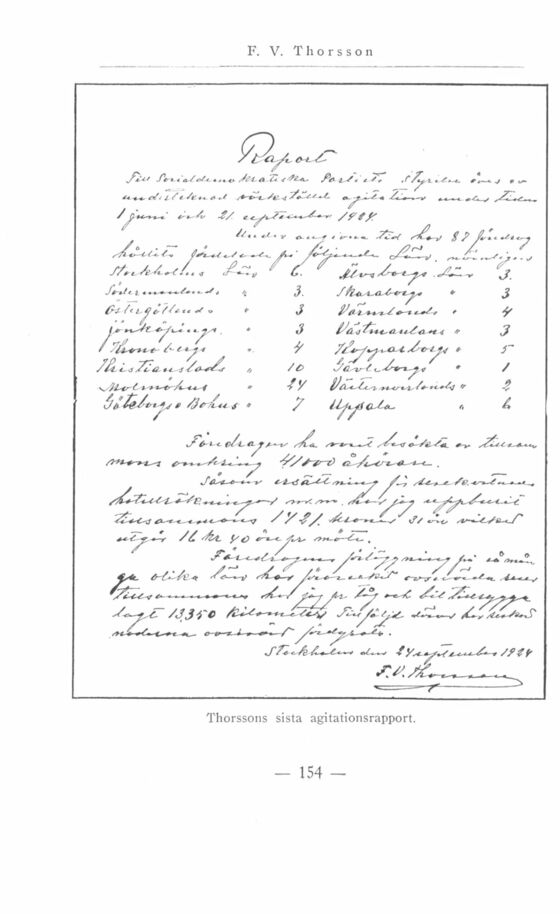 F. V. Thorsson
Raport
Till Socialdemokratiska Partiets Styrelse över av
undertecknad värkställd agitation under tiden
1 juni och 21. september 1924.
Under angivna tid har 87 föredrag
hållits fördelade på följande Län, nämligen
Stockholms Län 6. Älvsborgs Län 3.
Södermanlands " 3. Skaraborgs " 3
Östergötlands " 3 Värmlands " 4
Jönköpings. " 3 Västmanlans " 3
Kronobergs ". 4 Kopparbergs " 5
Kristianstads " 10 Gävleborgs " 1
Malmöhus " 24 Västernorrlands " 2
Göteborgs o Bohus " 7 Uppsala " 6
Föredragen ha varit besökta av tillsam
mans omkring 41000 åhörare.
Såsom ersättning för resekostnader
hotellräkningar m.m. har jag uppburit
tillsammans 1421. kronor 31 öre vilket
utgör 16 kr 40 öre pr möte.
Föredragens förläggning på så mån
ga olika län har förorsakat resor
tillsammans har jag pr tåg och bil tillrygga
lagt 13,350 kilometer Till följd därav har
fördyrats.
Stockholm den 24 september 1924
F. V. Thorsson
Thorssons sista agitationsrapport.
— 154 —